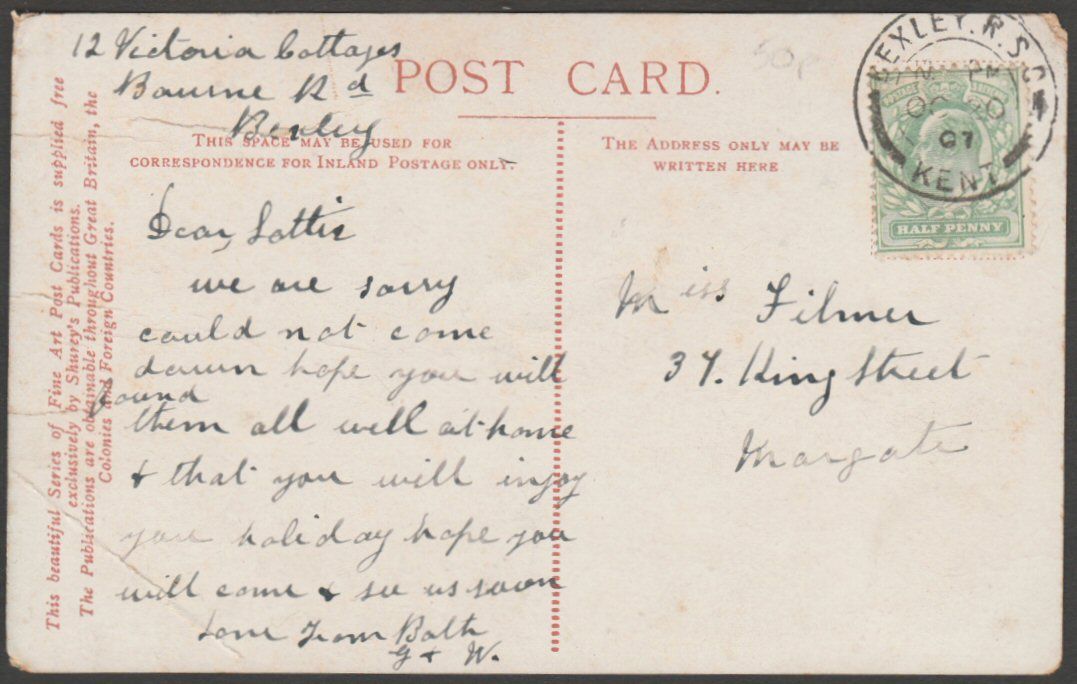 12 Victoria Cottages
Bourne Rd
Bexley
POST CARD.
THIS SPACE MAY BE USED FOR
CORRESPONDENCE FOR INLAND POSTAGE ONLY.
THE ADDRESS ONLY MAY BE
WRITTEN HERE
50p
BEXLEY.R.S.O
PM
OC 20
07
KENT
HALF PENNY
This beautiful Series of Fine Art Post Cards is supplied free
exclusively by Shurey's Publications.
The Publications are obtainable throughout Great Britain, the
Colonies and Foreign Countries.
Dear Lottie
we are sorry
could not come
down hope you will
found
them all well at home
+ that you will injoy
your holiday hope you
will come + see us soon
Love From Both
G + W.
Miss Filmer
37. King Street
Margate